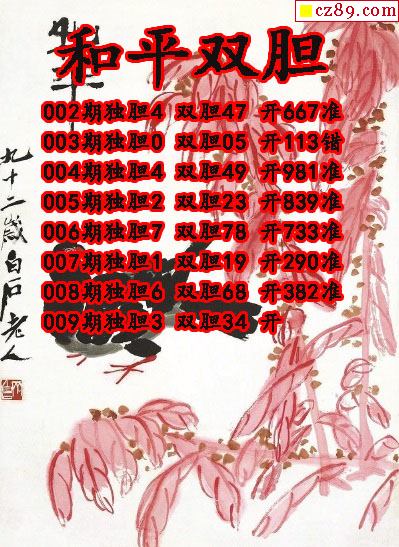 cz89.com
和平双胆
002期独胆4 双胆47 开667准
003期独胆0 双胆05 开113错
004期独胆4 双胆49 开981准
005期独胆2 双胆23 开839准
006期独胆7 双胆78 开733准
007期独胆1 双胆19 开290准
008期独胆6 双胆68 开382准
009期独胆3 双胆34 开
九十二岁白石老人